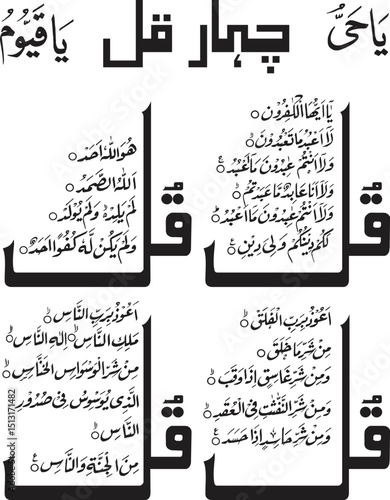 یَاحَیُّ
چہار قل
یَاقَیُّوْمُ
قُلْ
یٰۤاَیُّهَا الْكٰفِرُوْنَ
لَاۤ اَعْبُدُ مَا تَعْبُدُوْنَ
وَلَاۤ اَنْتُمْ عٰبِدُوْنَ مَاۤ اَعْبُدُ
وَلَاۤ اَنَا عَابِدٌ مَّا عَبَدْتُّمْ
وَلَاۤ اَنْتُمْ عٰبِدُوْنَ مَاۤ اَعْبُدُ
لَكُمْ دِیْنُكُمْ وَلِیَ دِیْنِ
قُلْ
هُوَ اللّٰهُ اَحَدٌ
اَللّٰهُ الصَّمَدُ
لَمْ یَلِدْ وَلَمْ یُوْلَدْ
وَلَمْ یَكُنْ لَّهٗ كُفُوًا اَحَدٌ
قُلْ
اَعُوْذُ بِرَبِّ الْفَلَقِ
مِنْ شَرِّ مَا خَلَقَ
وَمِنْ شَرِّ غَاسِقٍ اِذَا وَقَبَ
وَمِنْ شَرِّ النَّفّٰثٰتِ فِی الْعُقَدِ
وَمِنْ شَرِّ حَاسِدٍ اِذَا حَسَدَ
قُلْ
اَعُوْذُ بِرَبِّ النَّاسِ
مَلِكِ النَّاسِ اِلٰهِ النَّاسِ
مِنْ شَرِّ الْوَسْوَاسِ الْخَنَّاسِ
الَّذِیْ یُوَسْوِسُ فِیْ صُدُوْرِ
النَّاسِ
مِنَ الْجِنَّةِ وَالنَّاسِ
Adobe Stock | #1513171482